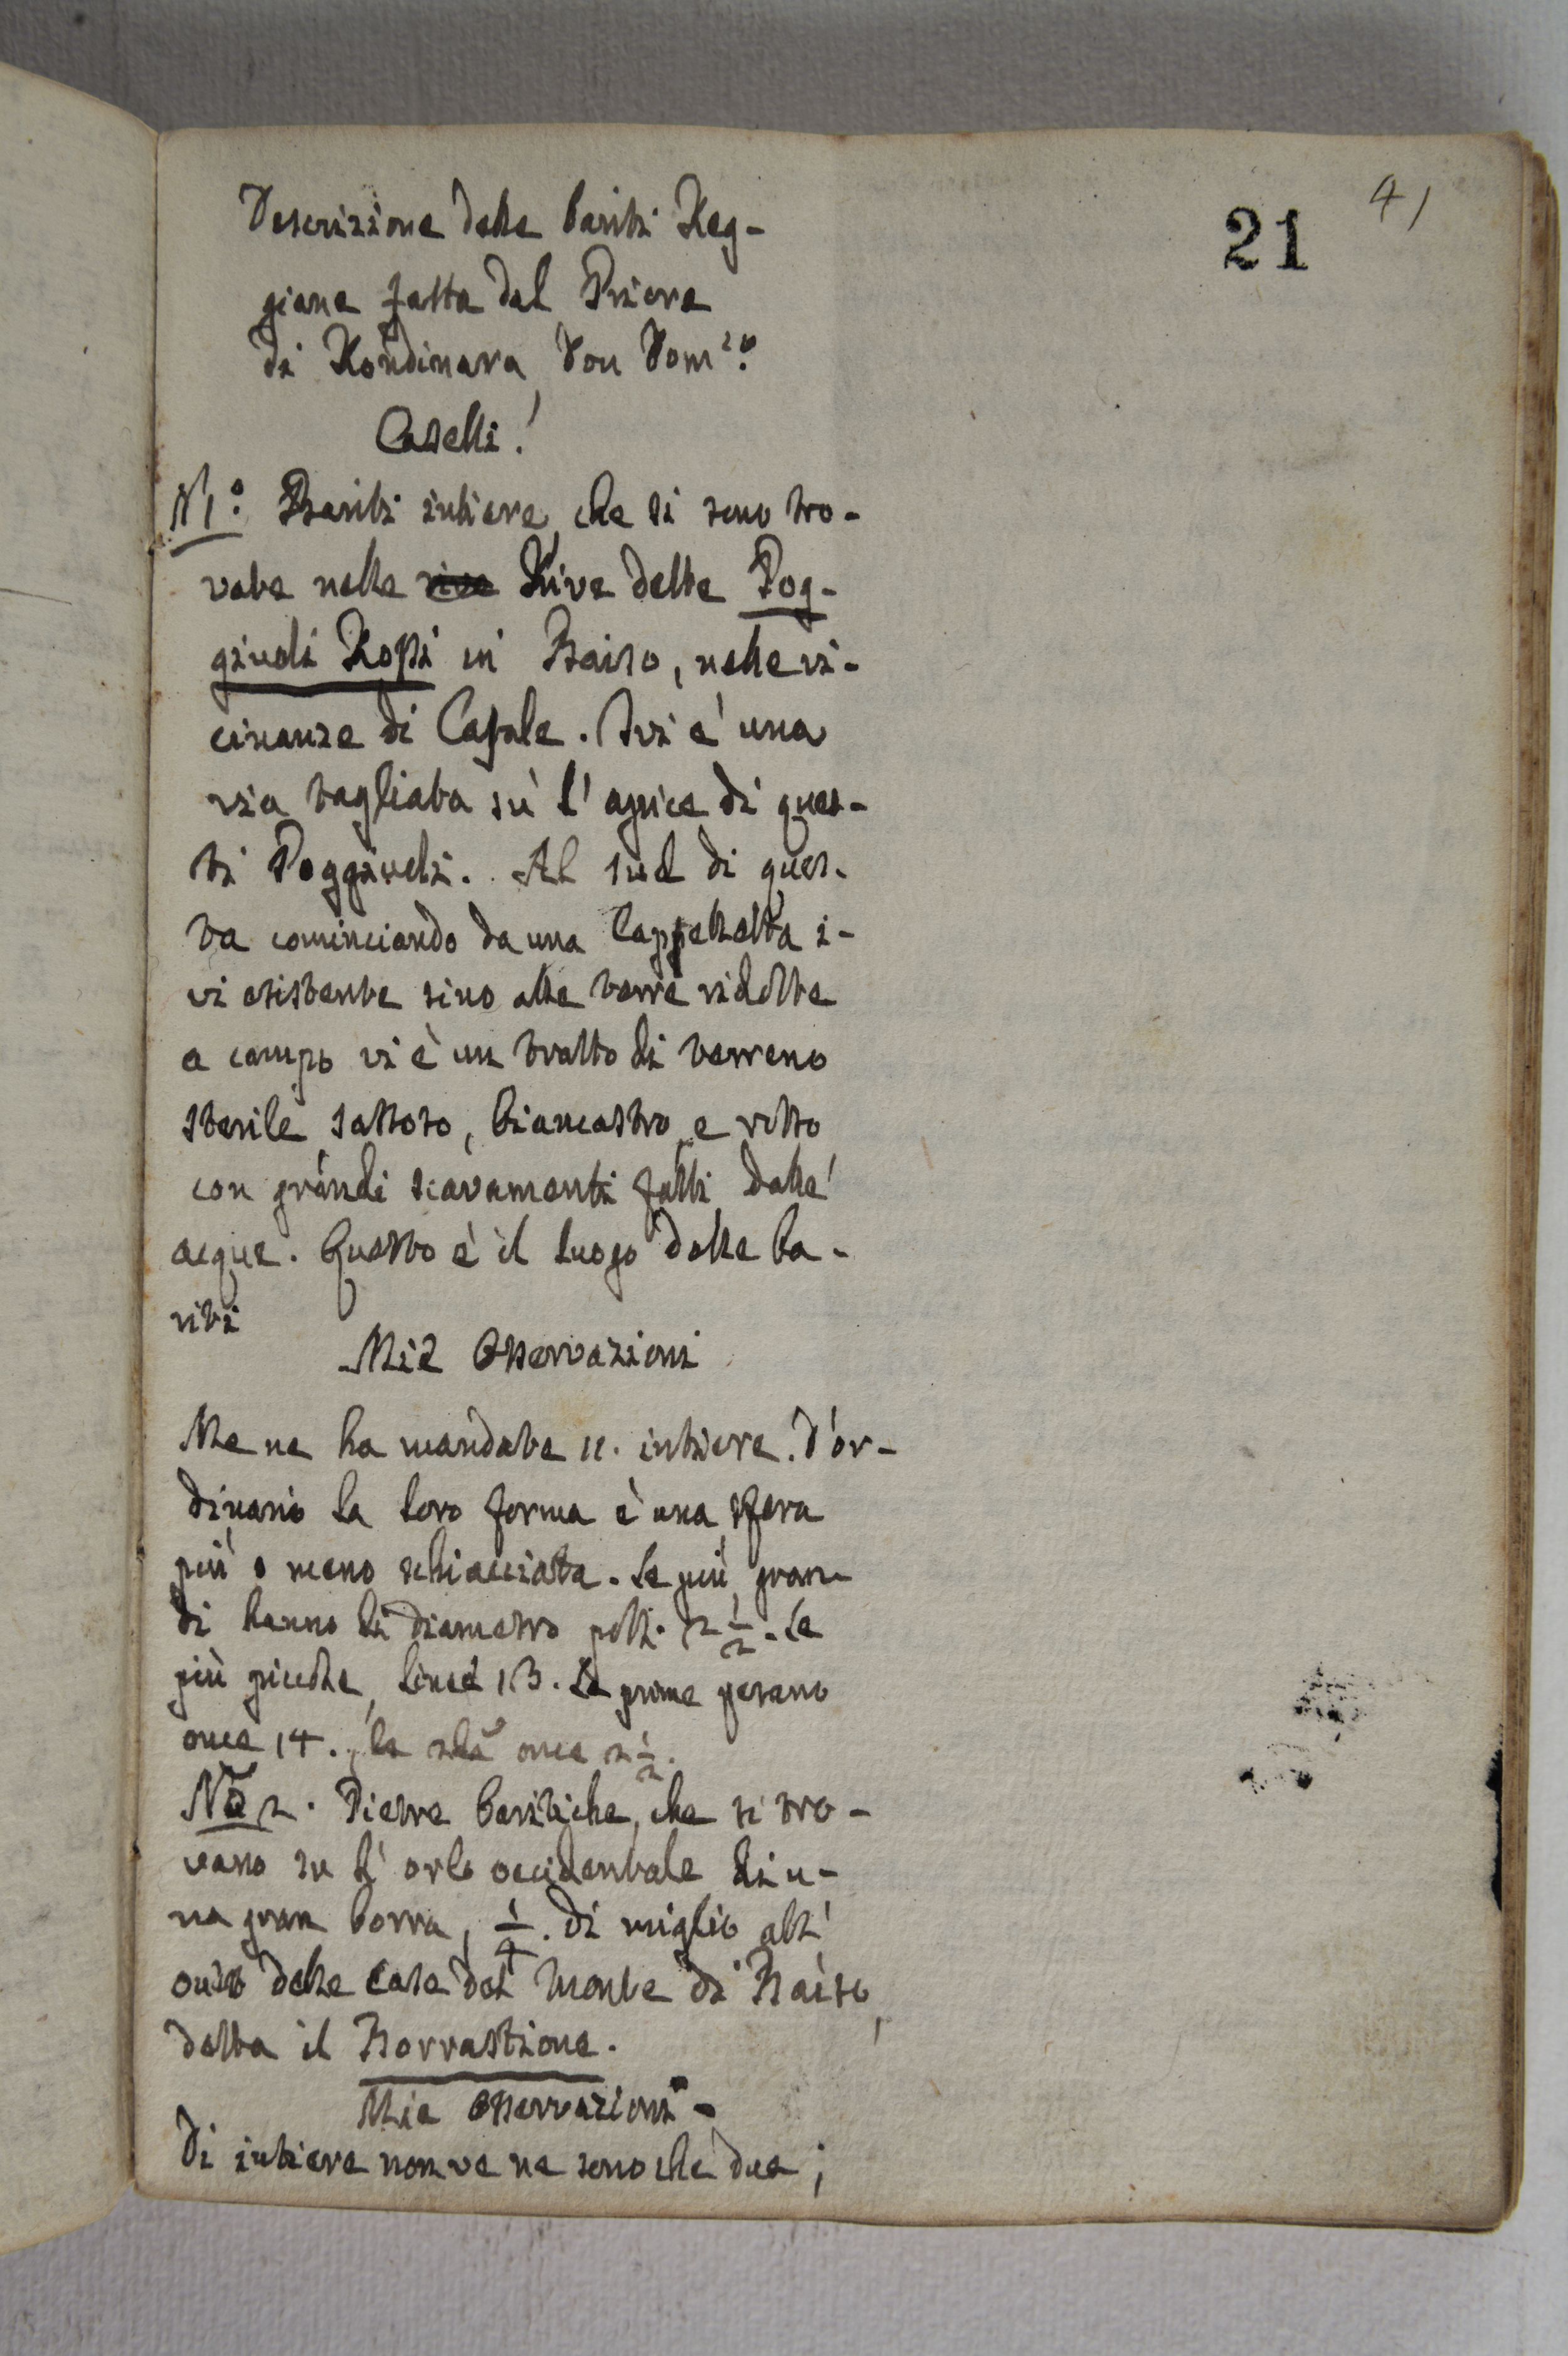 41
21
Descrizione delle bariti Reg-
giane fatta dal Priore
di Rondinara Don Dom.co
Caselli.
N 1.° Bariti intiere, che si sono tro-
vate nelle rive Rive dette Pog-
giuoli Rossi in Baiso, nelle vi-
cinanze di Casale. Ivi è una
via tagliata sù l'apice di ques-
ti Poggiuoli. Al sud di ques-
ta cominciando da una Cappelletta i-
vi esistente sino alle terre ridotte
a campo vi è un tratto di terreno
sterile sassoso, biancastro, e rotto
con grandi scavamenti fatti dalle
acque. Questo è il luogo delle ba-
riti
Mie Osservazioni
Me ne ha mandate 11. intiere. D'or-
dinario la loro forma è una sfera
più o meno schiacciata. Le più gran-
di hanno di diametro poll. 2 1/2. Le
più piccole, linee 13. Le prime pesano
once 14. le once 2 1/2.
No 2. Pietre baritiche, che si tro-
vano su l'orlo occidentale di u-
na gran borra, 1/4. di miglio all'
ouest delle case del Monte di Baiso,
detta il Borrastione.
Mie Osservazioni
Di intiere non ve ne sono che due;